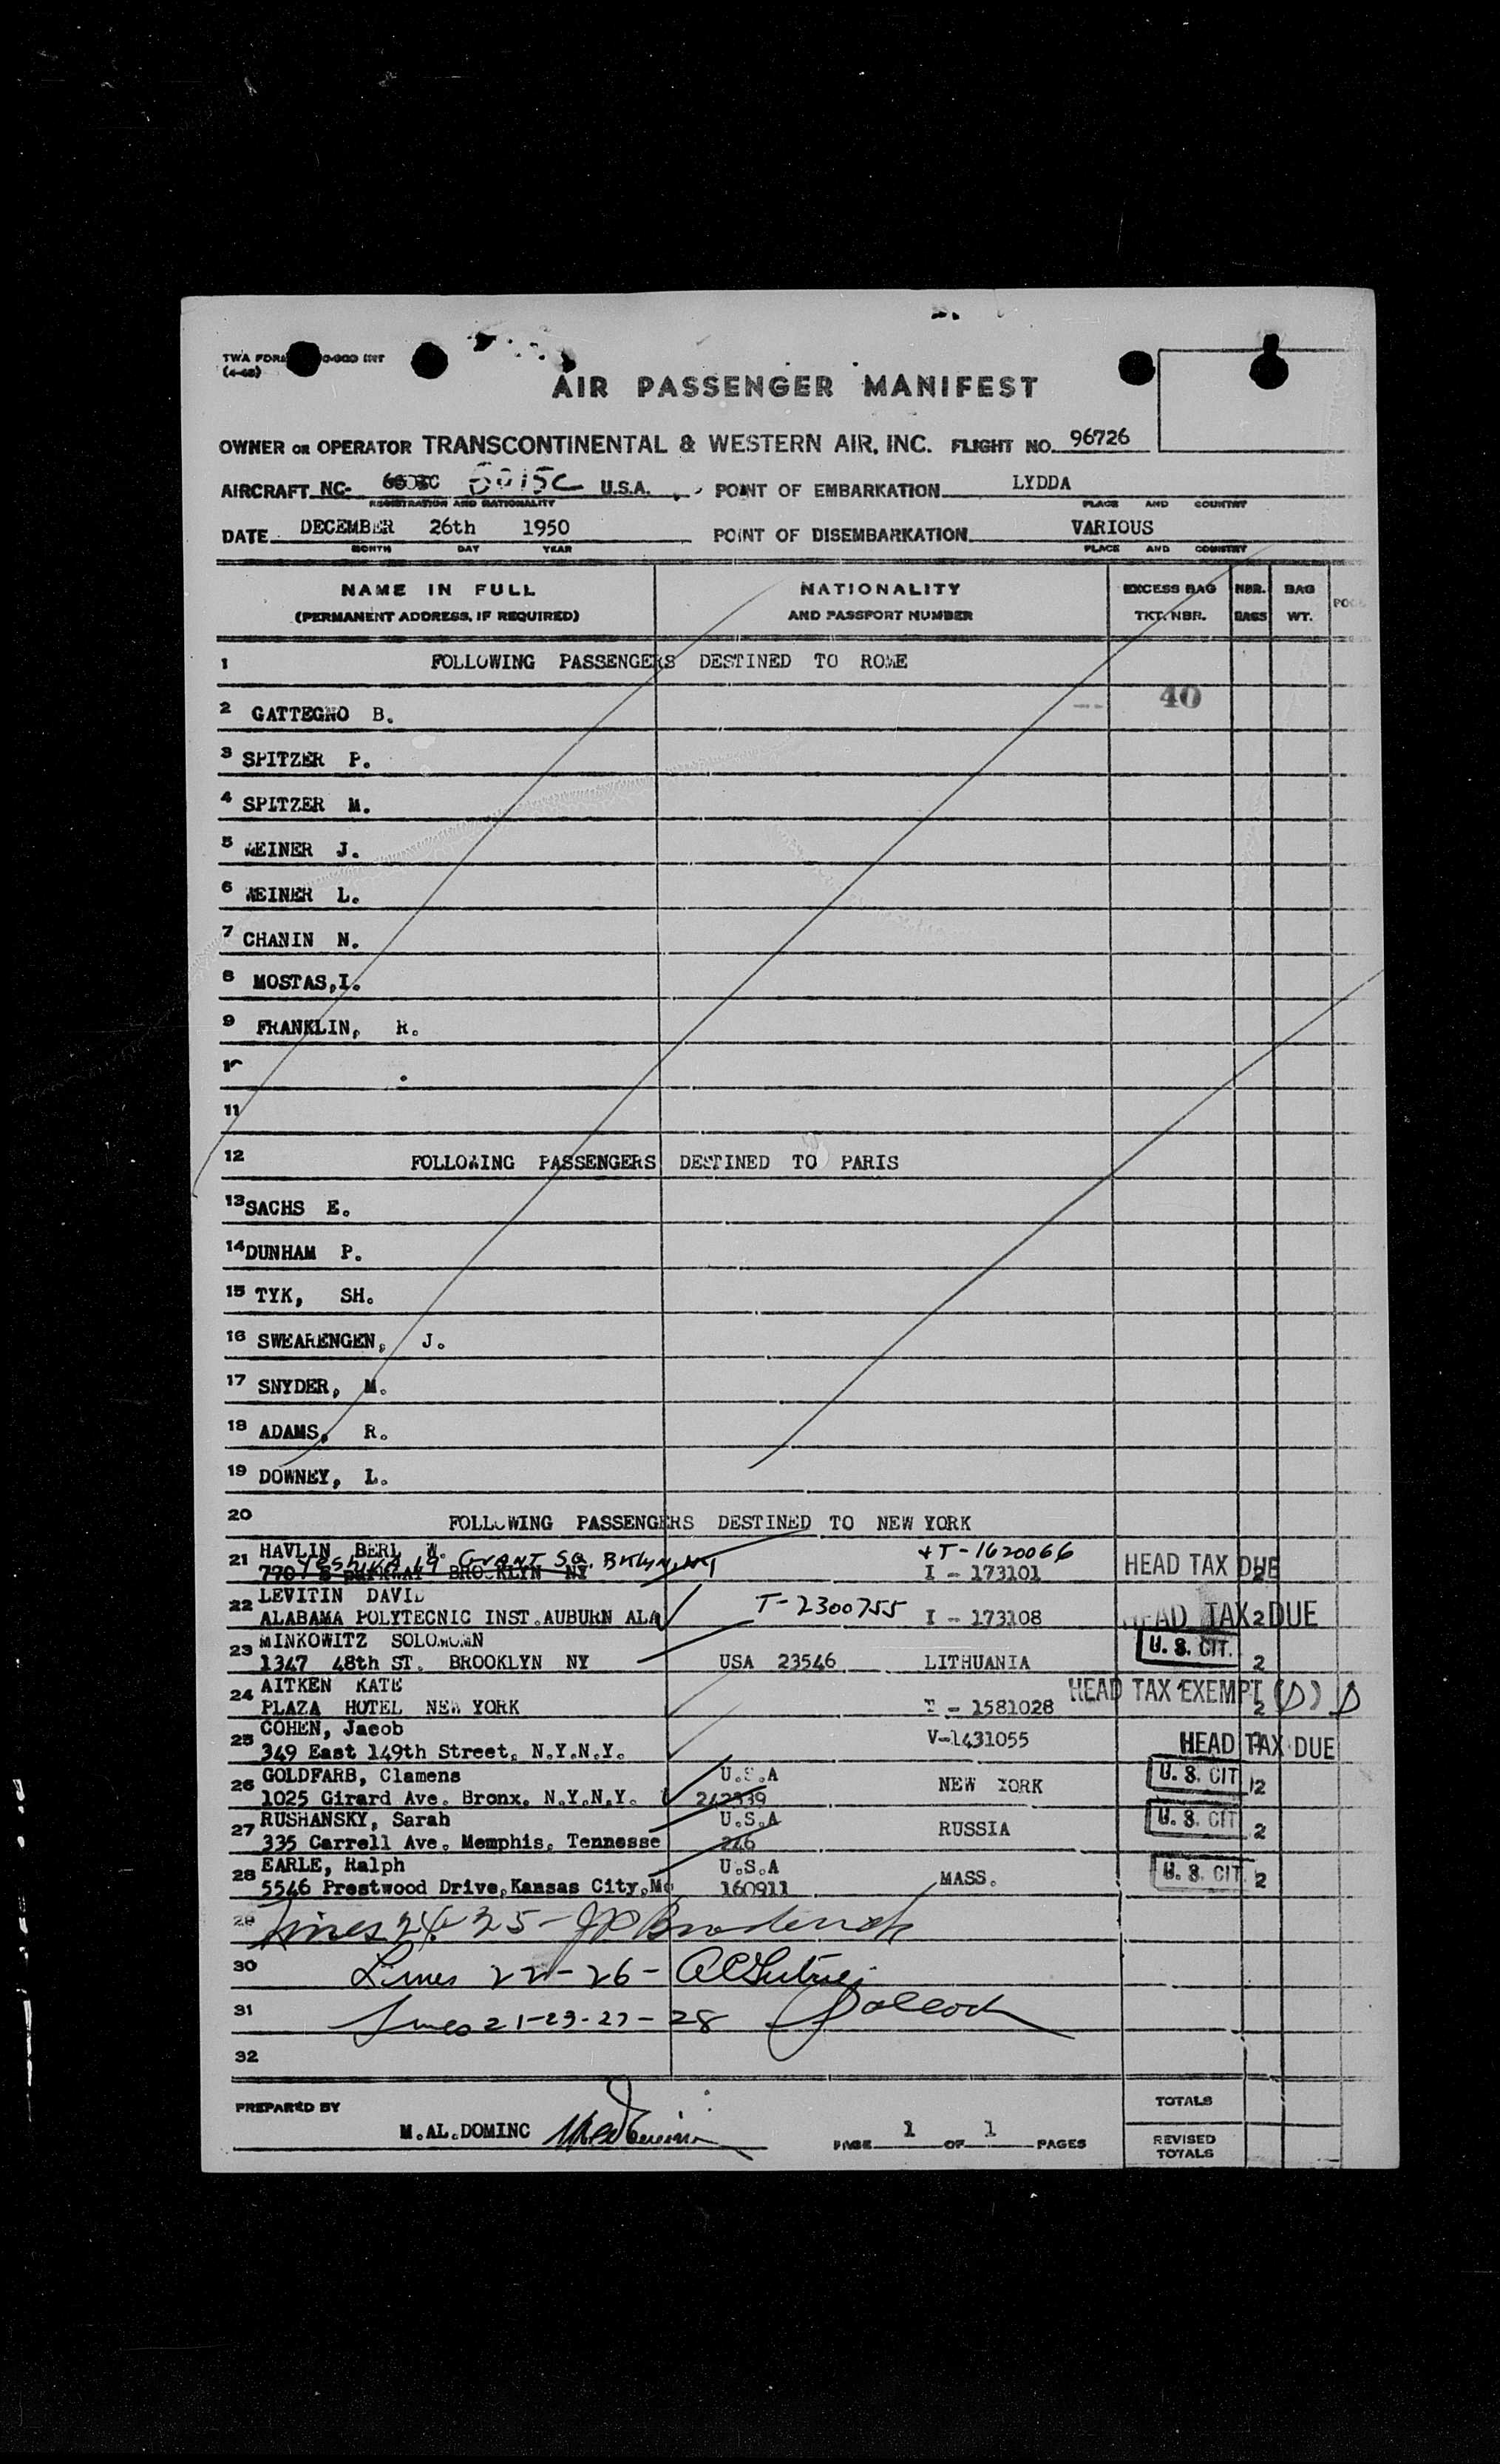 TWA FORM 0-000 INT
(4-48)
AIR PASSENGER MANIFEST
OWNER OR OPERATOR TRANSCONTINENTAL & WESTERN AIR, INC. FLIGHT NO. 96726
AIRCRAFT NC- 6015C U.S.A. POINT OF EMBARKATION LYDDA
REGISTRATION AND NATIONALITY PLACE AND COUNTRY
DATE DECEMBER 26th 1950 POINT OF DISEMBARKATION VARIOUS
MONTH DAY YEAR PLACE AND COUNTRY
NAME IN FULL NATIONALITY EXCESS BAG NBR. BAG
(PERMANENT ADDRESS, IF REQUIRED) AND PASSPORT NUMBER TKT. NBR. BAGS WT.
1 FOLLOWING PASSENGERS DESTINED TO ROME
40
2 GATTEGNO B.
3 SPITZER P.
4 SPITZER M.
5 WEINER J.
6 WEINER L.
7 CHANIN N.
8 MOSTAS,I.
9 FRANKLIN, R.
10
11
12 FOLLOWING PASSENGERS DESTINED TO PARIS
13 SACHS E.
14 DUNHAM P.
15 TYK, SH.
16 SWEARENGEN, J.
17 SNYDER, M.
18 ADAMS, R.
19 DOWNEY, L.
20 FOLLOWING PASSENGERS DESTINED TO NEW YORK
21 HAVLIN BERL W. + T-1620066
Yeshiva 19 Grant Sq. Bklyn, NY
770 E PARKWAY BROOKLYN NY I - 173101 HEAD TAX DUE 2
22 LEVITIN DAVID
ALABAMA POLYTECNIC INST.AUBURN ALA T-2300755 I - 173108 HEAD TAX DUE 2
23 MINKOWITZ SOLOMOMN U. S. CIT.
1347 48th ST. BROOKLYN NY USA 23546 LITHUANIA 2
24 AITKEN KATE HEAD TAX EXEMPT (D) D
PLAZA HOTEL NEW YORK T - 1581028 2
25 COHEN, Jacob V-1431055
349 East 149th Street, N.Y.N.Y. HEAD TAX DUE
26 GOLDFARB, Clamens U.S.A NEW YORK U. S. CIT 2
1025 Girard Ave. Bronx. N.Y.N.Y. 242339
27 RUSHANSKY, Sarah U.S.A RUSSIA U. S. CIT 2
335 Carrell Ave. Memphis, Tennesse 246
28 EARLE, Ralph U.S.A MASS. U. S. CIT 2
5546 Prestwood Drive,Kansas City,Mo 160911
29 Lines 24-25- JP Broderick
30 Lines 22-26-
31 Lines 21-23-27-28 Pollock
32
PREPARED BY TOTALS
M.AL.DOMINC PAGE 1 OF 1 PAGES REVISED
TOTALS